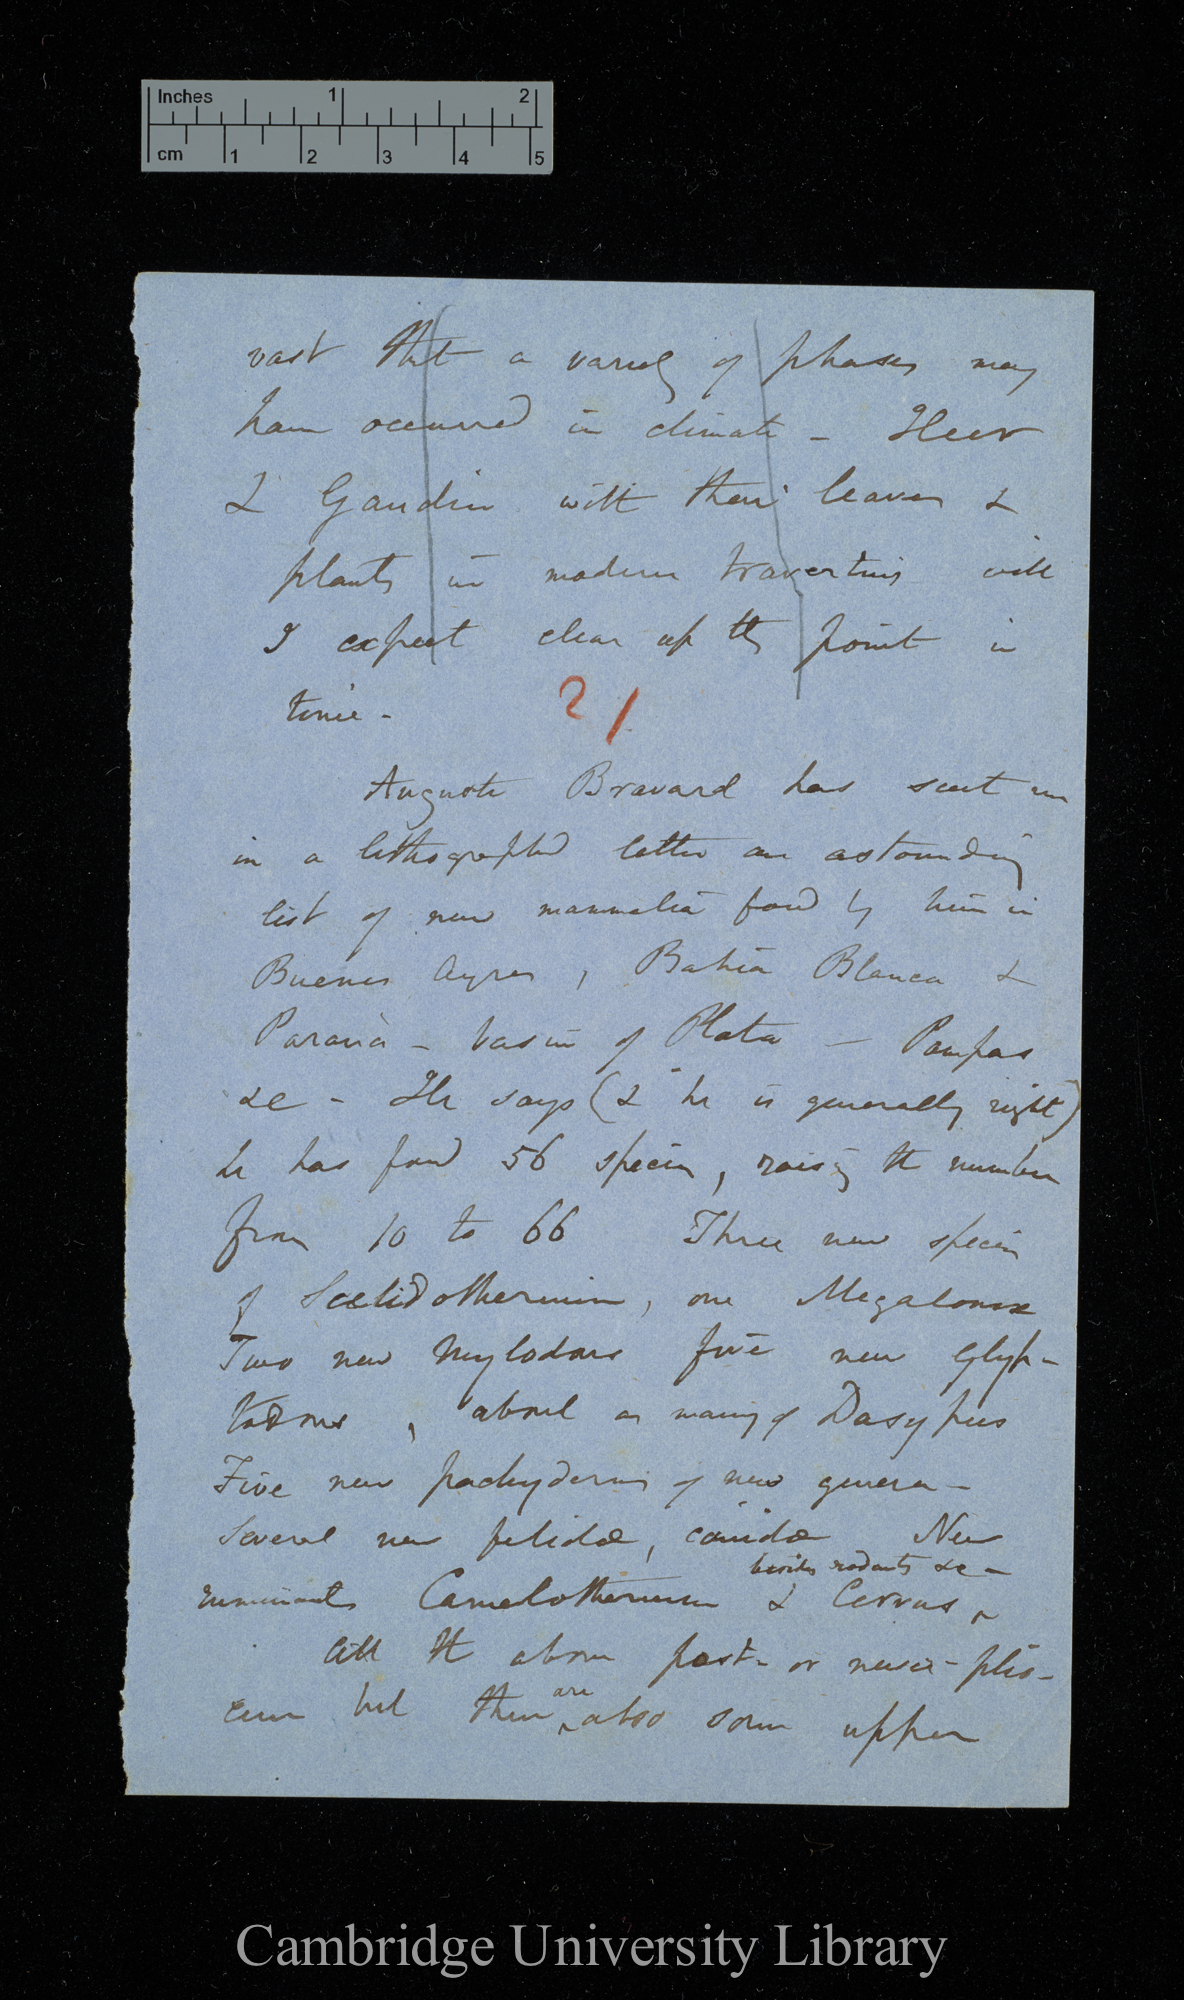 Inches 1 2
cm 1 2 3 4 5
vast that a variety of phases may
have occurred in climate – Heer
& Gaudin with their leaves &
plants in modern travertins will
I expect clear up the point in
time –
2/
Auguste Bravard has sent me
in a lithographed letter an astounding
list of new mammalia found by him in
Buenos Ayres, Bahia Blanca &
Paraná – basin of Plata – Pampas
&c – He says (& he is generally right)
he has found 56 species, raising the number
from 10 to 66 Three new species
of Scelidotherium, one Megalonix
Two new Mylodons five new Glyp-
todons, about as many of Dasypus
Five new pachyderms of new genera –
Several new felidæ, canidæ New
besides rodents &c –
ruminants Camelotherium & Cervus
All the above post- or newer-plio-
are
cene but there also some upper
Cambridge University Library